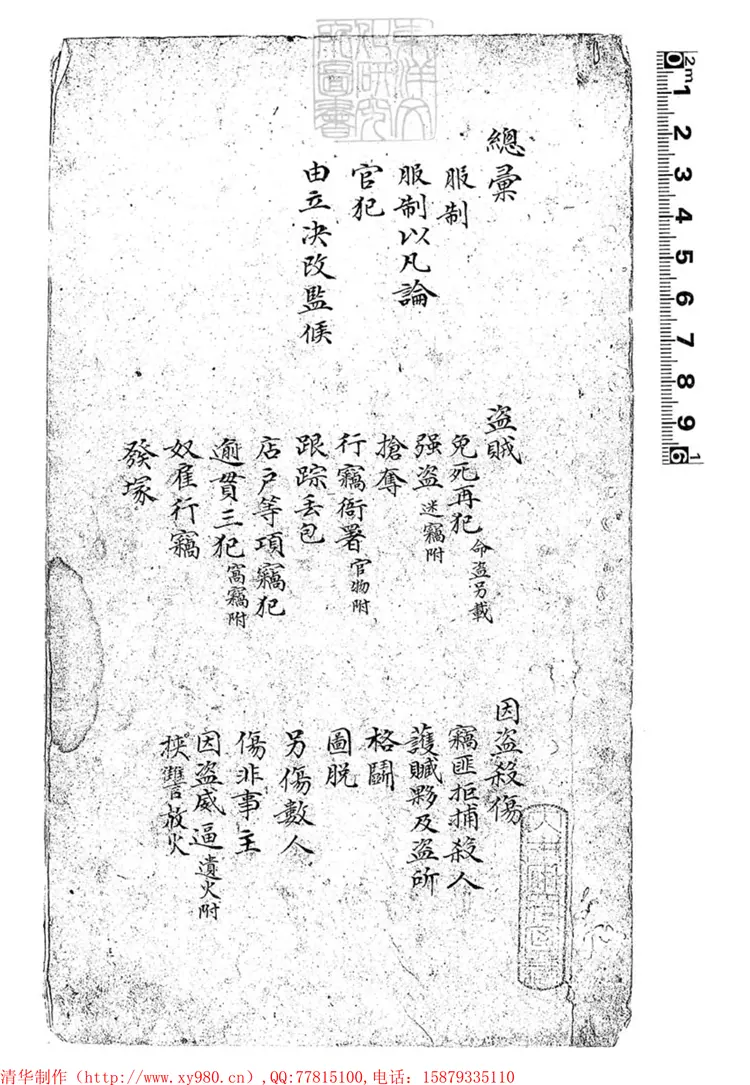 總彙
服制
服制以凡論
官犯
由立决改監候
盜賊
免死再犯 命盜另載
强盜 迷竊附
搶奪
行竊衙署 官物附
跟踪丢包
店戶等項竊犯
逾貫三犯 窩竊附
奴雇行竊
發塚
因盜殺傷
竊匪拒捕殺人
護贓夥及盜所
格鬭
圖脱
另傷數人
傷非事主
因盜威逼 遺火附
挾讐放火
東洋文
化研究
所圖書
2m
0 1 2 3 4 5 6 7 8 9 10
清华制作（http://www.xy980.cn）,QQ:77815100,电话：15879335110